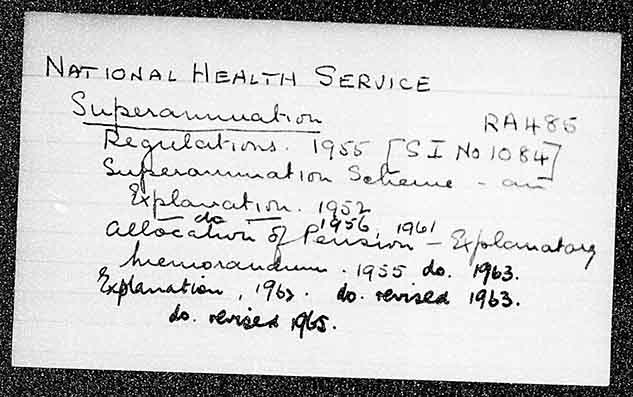 NATIONAL HEALTH SERVICE
Superannuation
RA485
Regulations. 1955 [SI No 1084]
Superannuation Scheme - an
Explanation. 1952
— do — 1956, 1961
Allocation of Pension - Explanatory
Memorandum. 1955 do. 1963.
Explanation, do. revised 1963.
do. revised 1965.